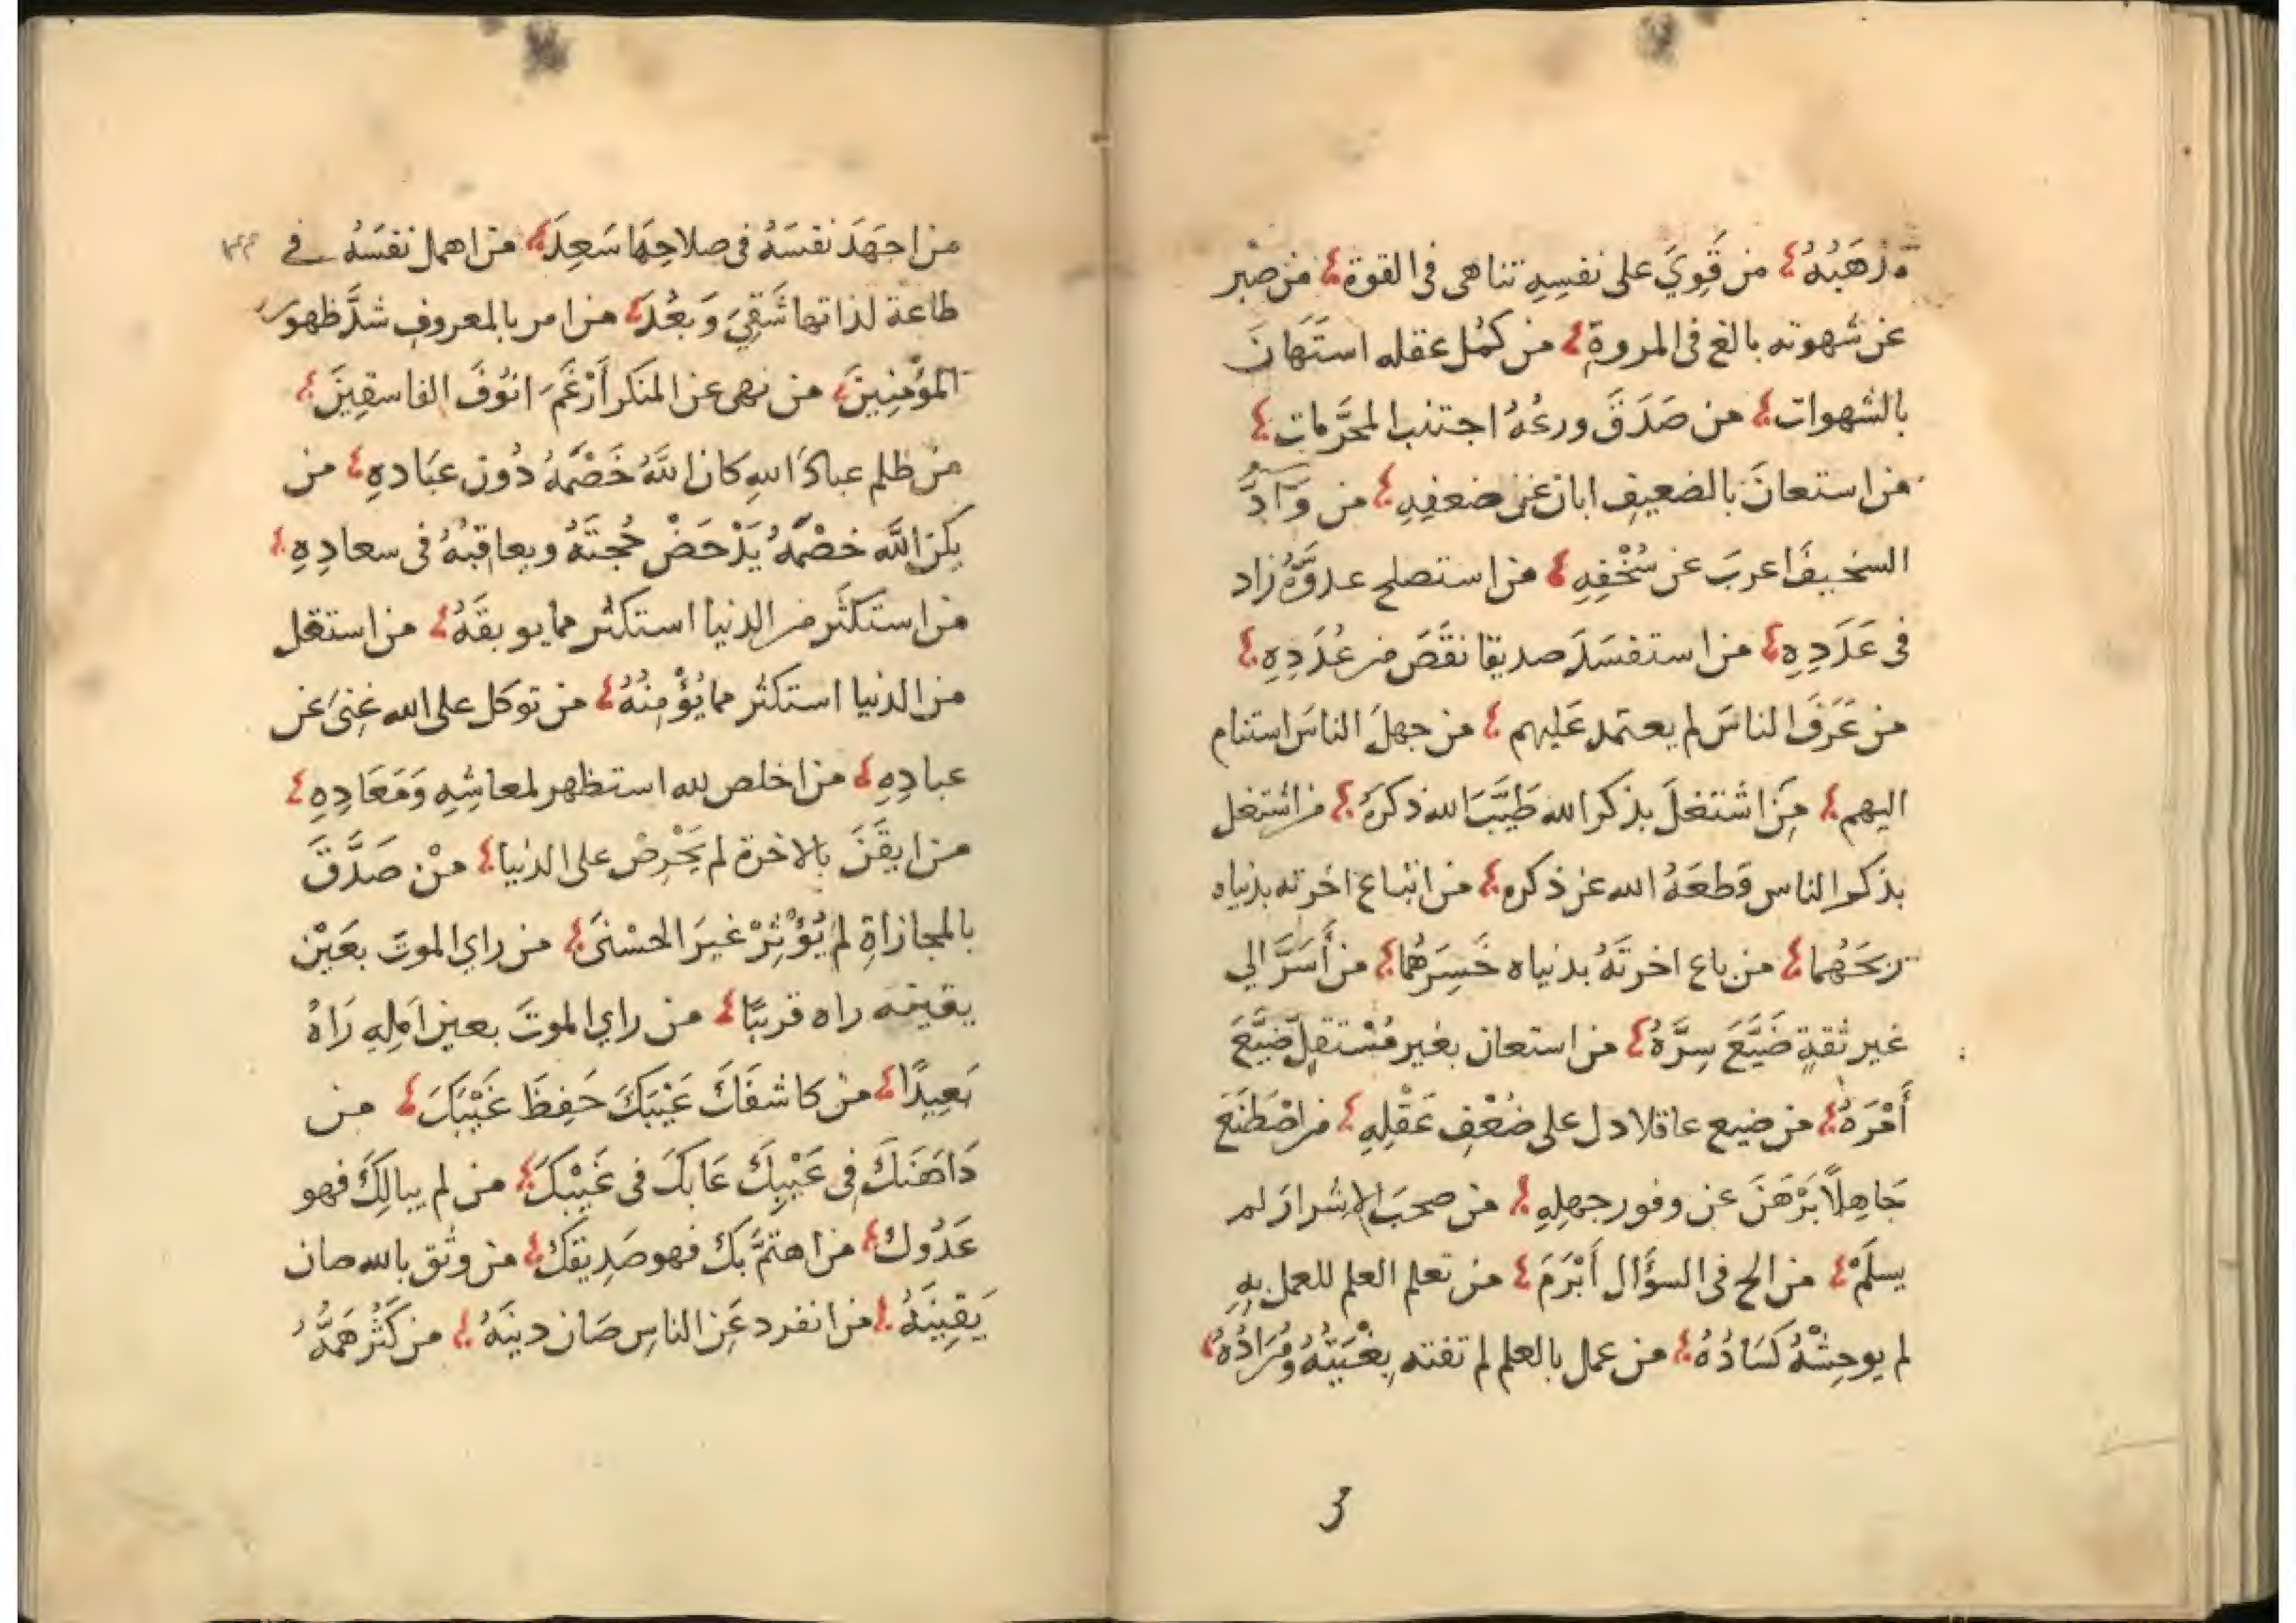 مَذْهَبُهُ من قَوِيَ على نفسِهِ تناهى فى القوة من صبر
عن شهوته بالغ فى المروة من كمُل عقله استَهَانَ
بالشهوات من صَدَقَ ورعُهُ اجتنب المحرَّمات
من استعانَ بالضعيفِ ابان عن ضعفِهِ من وَادَّ
السخيفَ اعربَ عن سُخْفِهِ من استصلح عدوَّهُ زاد
فى عَدَدِهِ من استفسَدَ صديقا نقَصَ من عُدَدِهِ
من عَرَفَ الناسَ لم يعتمد عَليهم من جهلَ الناسَ استنام
اليهم مَنِ اشتغلَ بذكر الله طَيَّبَ الله ذكرَهُ من اشتغل
بذكر الناس قطعَهُ الله عن ذكره من ابتاع اخرته بدنياه
ربحَهُما من باع اخرتَهُ بدنياه خَسِرَهُمَا من أَسَرَّ الي
غير ثقةٍ ضَيَّعَ سِرَّهُ من استعان بغير مُسْتقلٍّ ضَيَّعَ
أَمْرَهُ من ضيع عاقلا دل على ضُعْفِ عَقْلِهِ من اصْطَنَعَ
جَاهِلًا بَرْهَنَ عن وفور جهلِهِ من صحبَ الاشرارَ لم
يسلَمْ من الح فى السؤَال أَبْرَمَ من تعلم العلم للعمل بِهِ
لم يوحِشْهُ كَسَادُهُ من عمل بالعلم لم تفته بِغْيَتُهُ ومُرَادُهُ
من اجهَدَ نفسَهُ فى صلاحِهَا سَعِدَ من اهمل نفسَهُ في
طاعة لذاتها شَقِيَ وَبَعُدَ من امر بالمعروفِ شدَّ ظهور
المُؤْمنِينَ من نهى عن المنكر أَرْغَمَ انُوْفَ الفاسقِينَ
من ظلم عبادَ اللهِ كان اللَّهُ خَصْمَهُ دُون عبَادهِ من
يكن اللَّه خصْمَهُ يَدْحَضْ حُجتَهُ ويعاقبُهُ فى سعادِهِ
من استكثَر من الدنيا استكثر مما يوبقَهُ من استقل
من الدنيا استكثر مما يُؤْمِنُهُ من توكل على الله غَنِىَ عن
عبادِهِ من اخلص لله استظهر لمعاشِهِ وَمَعَادِهِ
من ايقَنَ بالاخرة لم يَحْرِصْ على الدنيا منْ صَدَّقَ
بالمجازاةِ لم يُؤْثِرْ غيرَ الحسْنَى من راي الموتَ بعَيْن
يقينه راه قريبًا من راي الموتَ بعين اَملِهِ رَاهُ
بَعِيدًا من كاشفَكَ عَيْبَكَ حَفِظَ غَيْبَكَ من
دَاهَنَكَ فِى عَيْبِكَ عَابَكَ فى غَيْبِكَ من لم يبالِكَ فهو
عَدُوك من اهتمَّ بكَ فهو صَدِيقَك من وثق بالله صان
يَقِينَهُ من انفرد عَنِ الناسِ صَان دينَهُ من كَثُرَ هَمُّهُ